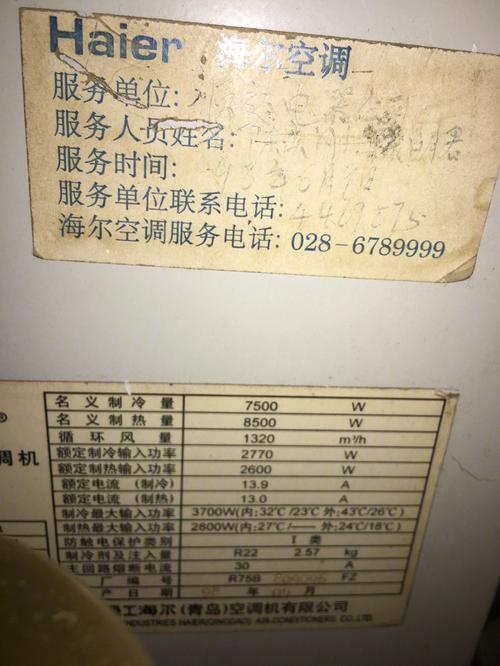 Haier 海尔空调
服务单位:
服务人员姓名:
服务时间:
服务单位联系电话: 4469575
海尔空调服务电话: 028-6789999
®
调机
名义制冷量 7500 W
名义制热量 8500 W
循环风量 1320 m³/h
额定制冷输入功率 2770 W
额定制热输入功率 2600 W
额定电流(制冷) 13.9 A
额定电流(制热) 13.0 A
制冷最大输入功率 3700W(内:32℃/23℃ 外:43℃/26℃)
制热最大输入功率 2800W(内:27℃/—— 外:24℃/18℃)
防触电保护类别 I 类
制冷剂及注入量 R22 2.57 kg
主回路熔断电流 30 A
厂编号 R75B FZ
产日期 年 月
工海尔(青岛)空调机有限公司
INDUSTRIES HAIER(QINGDAO) AIR-CONDITIONERS CO.,LTD.